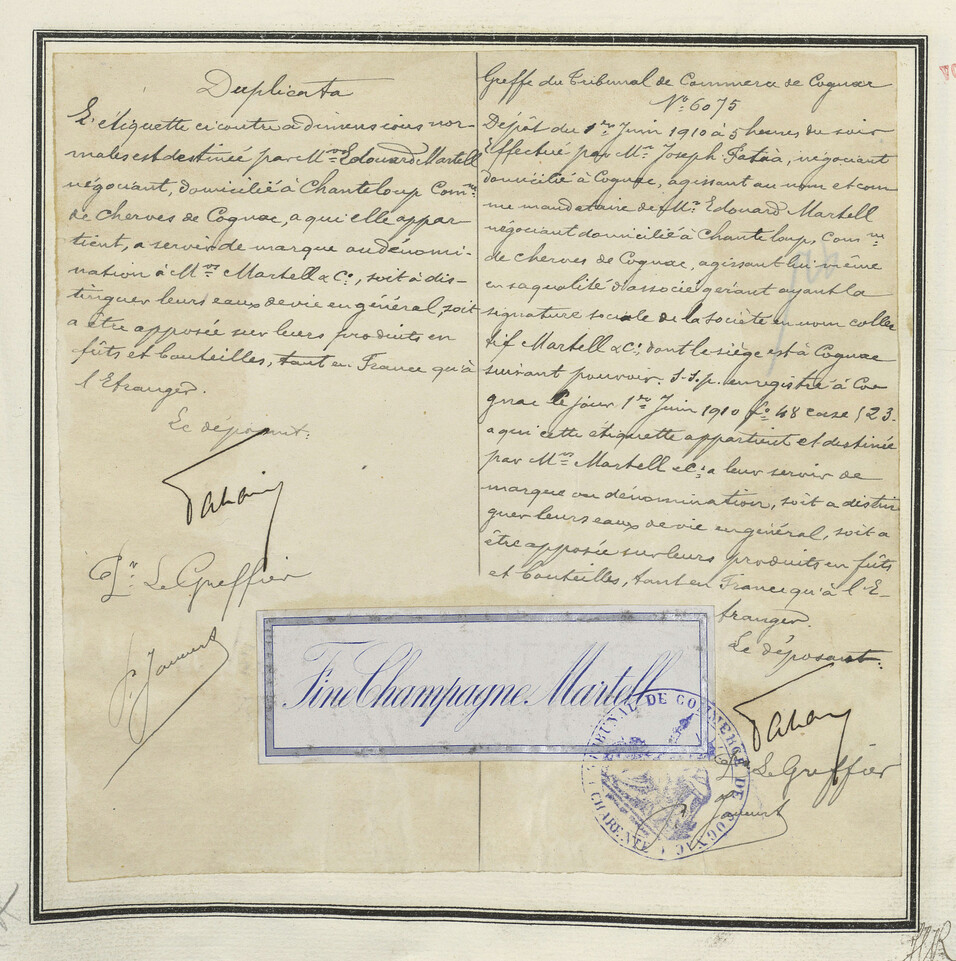 Duplicata
L'étiquette ci contre a dimensions nor-
males est destinée par Mr. Edouard Martell
négociant, domicilié à Chanteloup Comne
de Cherves de Cognac, a qui elle appar
tient, a servir de marque ou dénomi-
nation à Mrs Martell & Co, soit à dis-
tinguer leurs eaux de vie en général, soit
a être apposée sur leurs produits en
fûts et bouteilles, tant en France qu'à
l'Etranger.
Le déposant:
Pr. Le Greffier
Greffe du Tribunal de Commerce de Cognac
No 6075
Dépôt du 1er Juin 1910 à 5 heures du soir
Effectué par Mr. Joseph, négociant
domicilié à Cognac, agissant au nom et com
me mandataire de Mr. Edouard Martell
négociant domicilié à Chanteloup, Comne
de Cherves de Cognac, agissant lui même
en sa qualité d'associé gérant ayant la
signature sociale de la Société en nom collec
tif Martell & Co, dont le siège est à Cognac
suivant pouvoir. S.S.p. enregistré à Co
gnac le jour 1er Juin 1910 fo 48 case 23.
a qui cette étiquette appartient et destinée
par Mrs Martell & Co a leur servir de
marque ou dénomination, soit a distin
guer leurs eaux de vie en général, soit a
être apposée sur leurs produits en fûts
et bouteilles, tant en France qu'à l'E-
tranger.
Le déposant:
Le Greffier
Fine Champagne Martell
TRIBUNAL DE COMMERCE DE COGNAC
CHARENTE